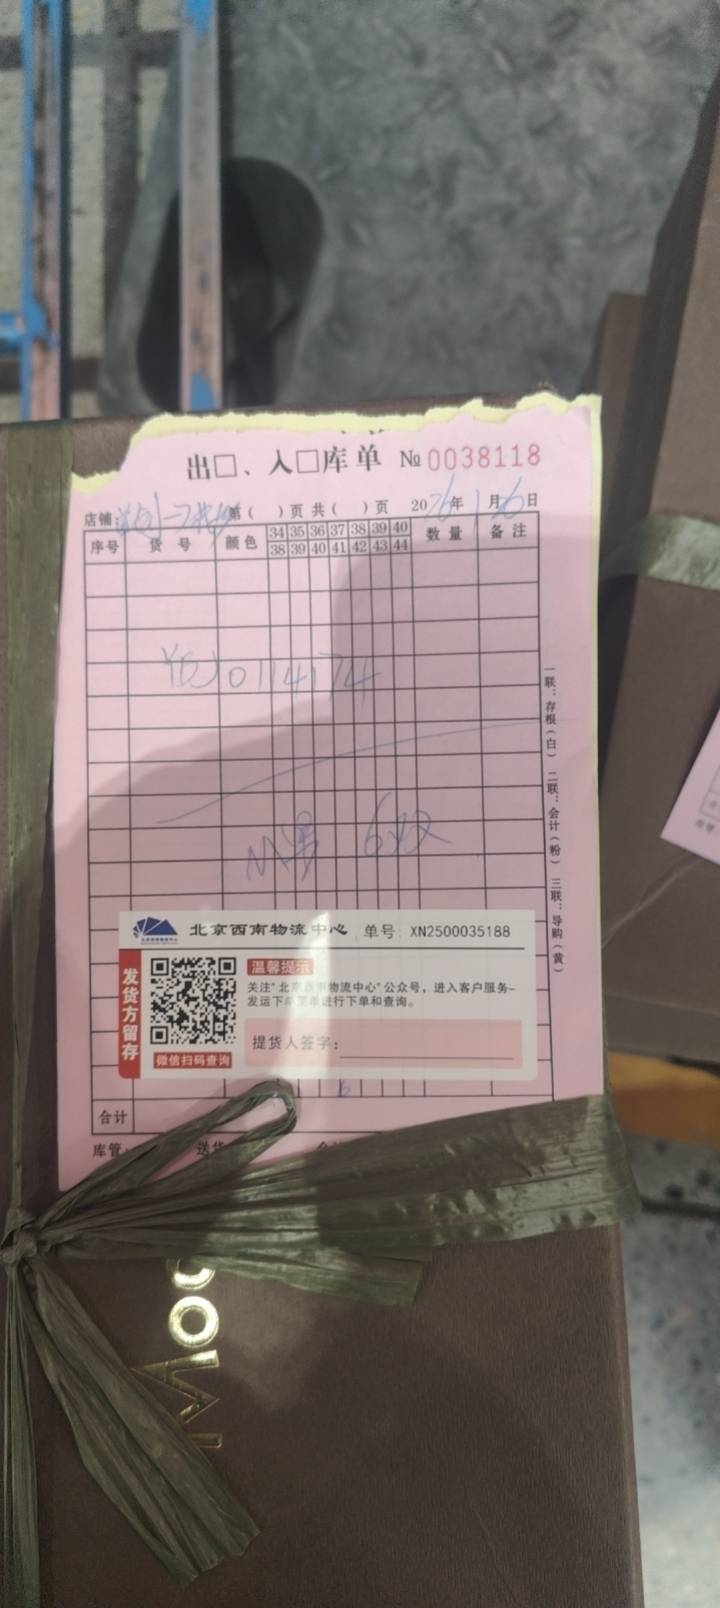 出□、入□库单 №0038118
店铺: 第( )页 共( )页 2026年1月26日
序号 货号 颜色 34 35 36 37 38 39 40 数量 备注
38 39 40 41 42 43 44
0114174
M号 6双
一联：存根（白） 二联：会计（粉） 三联：导购（黄）
北京西南物流中心 单号: XN2500035188
发货方留存
温馨提示
关注"北京西南物流中心"公众号，进入客户服务-
发运下单菜单进行下单和查询。
微信扫码查询
提货人签字:
6
合计
库管: 送货
OOM